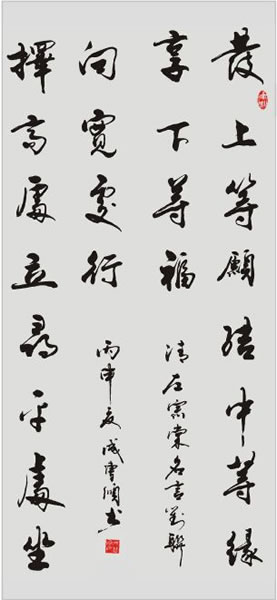 發上等願結中等緣
享下等福
清左宗棠名言對聯
擇高處立尋平處坐
向寬處行
丙申夏 书